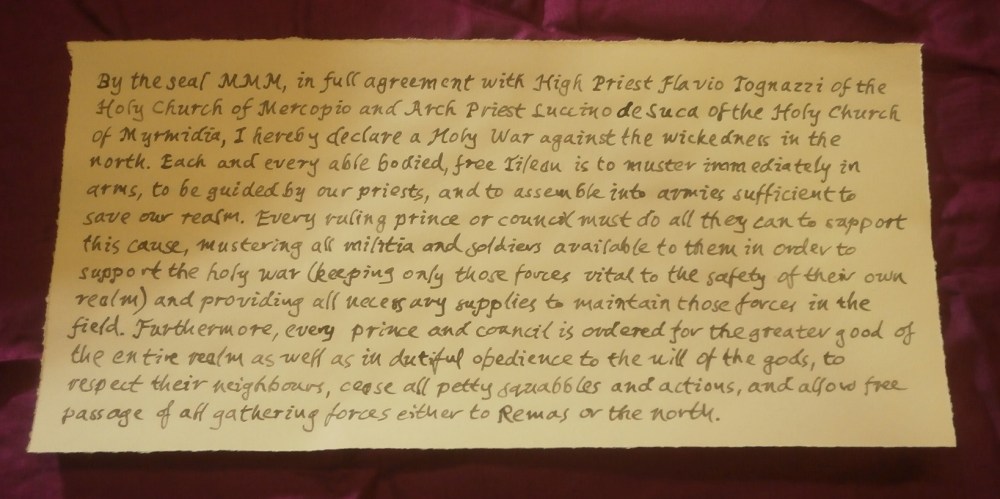 By the seal MMM, in full agreement with High Priest Flavio Tognazzi of the
Holy Church of Mercopio and Arch Priest Luccino de Suca of the Holy Church
of Myrmidia, I hereby declare a Holy War against the wickedness in the
north. Each and every able bodied, free Tilean is to muster immediately in
arms, to be guided by our priests, and to assemble into armies sufficient to
save our realm. Every ruling prince or council must do all they can to support
this cause, mustering all militia and soldiers available to them in order to
support the holy war (keeping only those forces vital to the safety of their own
realm) and providing all necessary supplies to maintain those forces in the
field. Furthermore, every prince and council is ordered for the greater good of
the entire realm as well as in dutiful obedience to the will of the gods, to
respect their neighbours, cease all petty squabbles and actions, and allow free
passage of all gathering forces either to Remas or the north.